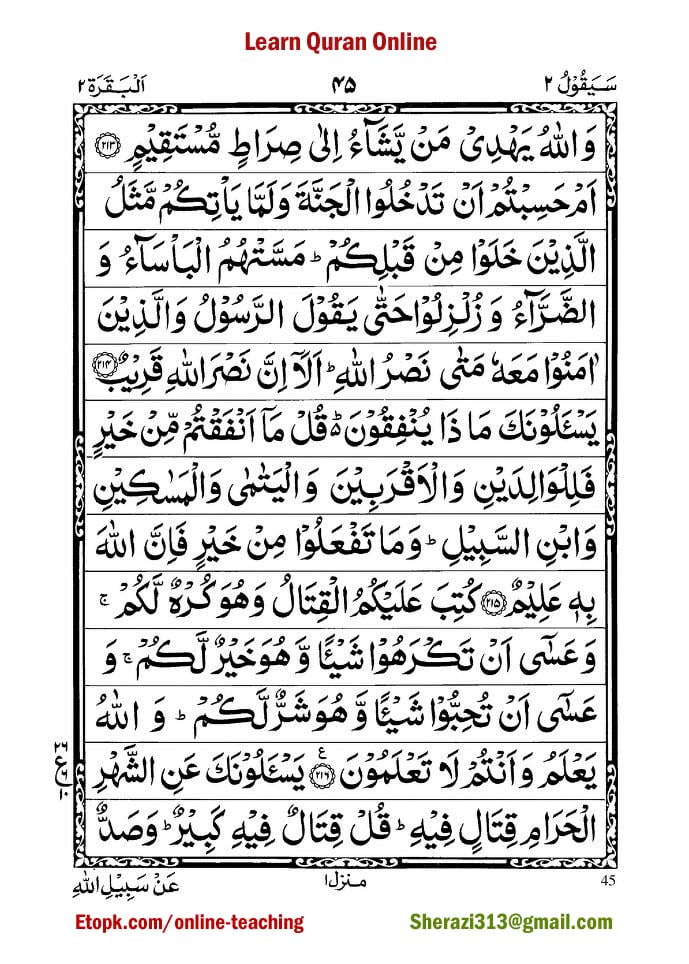 Learn Quran Online
سَيَقُوۡلُ ۲ ۴۵ اَلۡبَقَرَة ۲
وَاللّٰهُ يَهۡدِىۡ مَنۡ يَّشَآءُ اِلٰى صِرَاطٍ مُّسۡتَقِيۡمٍ ﴿۲۱۳﴾
اَمۡ حَسِبۡتُمۡ اَنۡ تَدۡخُلُوا الۡجَنَّةَ وَلَمَّا يَاۡتِكُمۡ مَّثَلُ
الَّذِيۡنَ خَلَوۡا مِنۡ قَبۡلِكُمۡ ؕ مَسَّتۡهُمُ الۡبَاۡسَآءُ وَ
الضَّرَّآءُ وَ زُلۡزِلُوۡا حَتّٰى يَقُوۡلَ الرَّسُوۡلُ وَالَّذِيۡنَ
اٰمَنُوۡا مَعَهٗ مَتٰى نَصۡرُ اللّٰهِ ؕ اَلَاۤ اِنَّ نَصۡرَ اللّٰهِ قَرِيۡبٌ ﴿۲۱۴﴾
يَسۡـَٔلُوۡنَكَ مَا ذَا يُنۡفِقُوۡنَ ؕ قُلۡ مَاۤ اَنۡفَقۡتُمۡ مِّنۡ خَيۡرٍ
فَلِلۡوَالِدَيۡنِ وَالۡاَقۡرَبِيۡنَ وَالۡيَتٰمٰى وَالۡمَسٰكِيۡنِ
وَابۡنِ السَّبِيۡلِ ؕ وَمَا تَفۡعَلُوۡا مِنۡ خَيۡرٍ فَاِنَّ اللّٰهَ
بِهٖ عَلِيۡمٌ ﴿۲۱۵﴾ كُتِبَ عَلَيۡكُمُ الۡقِتَالُ وَهُوَ كُرۡهٌ لَّكُمۡ ۚ
وَعَسٰۤى اَنۡ تَكۡرَهُوۡا شَيۡـًٔا وَّهُوَ خَيۡرٌ لَّكُمۡ ۚ وَ
عَسٰۤى اَنۡ تُحِبُّوۡا شَيۡـًٔا وَّهُوَ شَرٌّ لَّكُمۡ ؕ وَ اللّٰهُ
يَعۡلَمُ وَاَنۡتُمۡ لَا تَعۡلَمُوۡنَ ﴿۲۱۶﴾ ع يَسۡـَٔلُوۡنَكَ عَنِ الشَّهۡرِ
۲۶
ع ۶
۱۰
الۡحَرَامِ قِتَالٍ فِيۡهِ ؕ قُلۡ قِتَالٌ فِيۡهِ كَبِيۡرٌ ؕ وَصَدٌّ
45 منزل۱ عَنۡ سَبِيۡلِ اللّٰهِ
Etopk.com/online-teaching Sherazi313@gmail.com